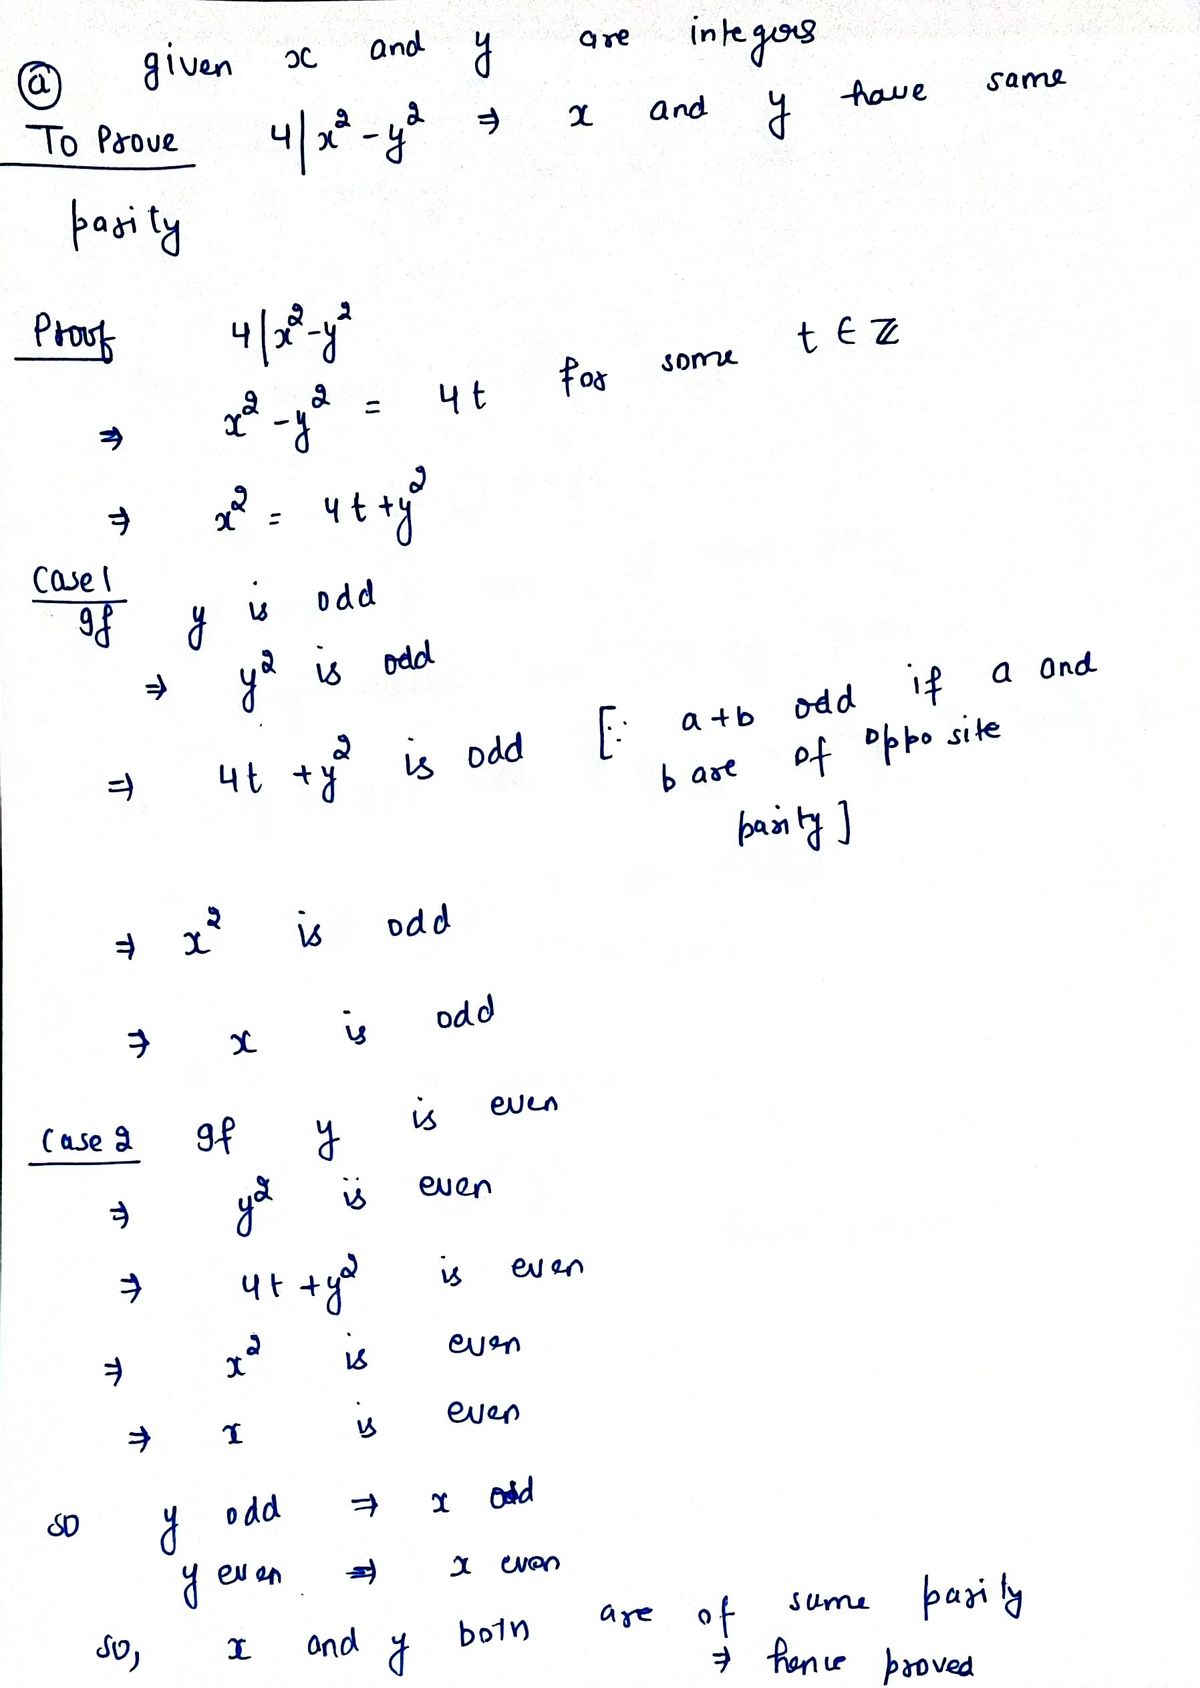 (a) given x and y are integers
To Prove 4|x² - y² ⇒ x and y have same
parity
Proof 4|x²-y²
⇒ x² - y² = 4t for some t ∈ ℤ
⇒ x² = 4t + y²
Case 1
If y is odd
⇒ y² is odd
⇒ 4t + y² is odd [∵ a+b odd if a and
b are of opposite
parity]
⇒ x² is odd
⇒ x is odd
Case 2 If y is even
⇒ y² is even
⇒ 4t + y² is even
⇒ x² is even
⇒ x is even
so y odd ⇒ x odd
y even ⇒ x even
so, x and y both are of same parity
⇒ hence proved